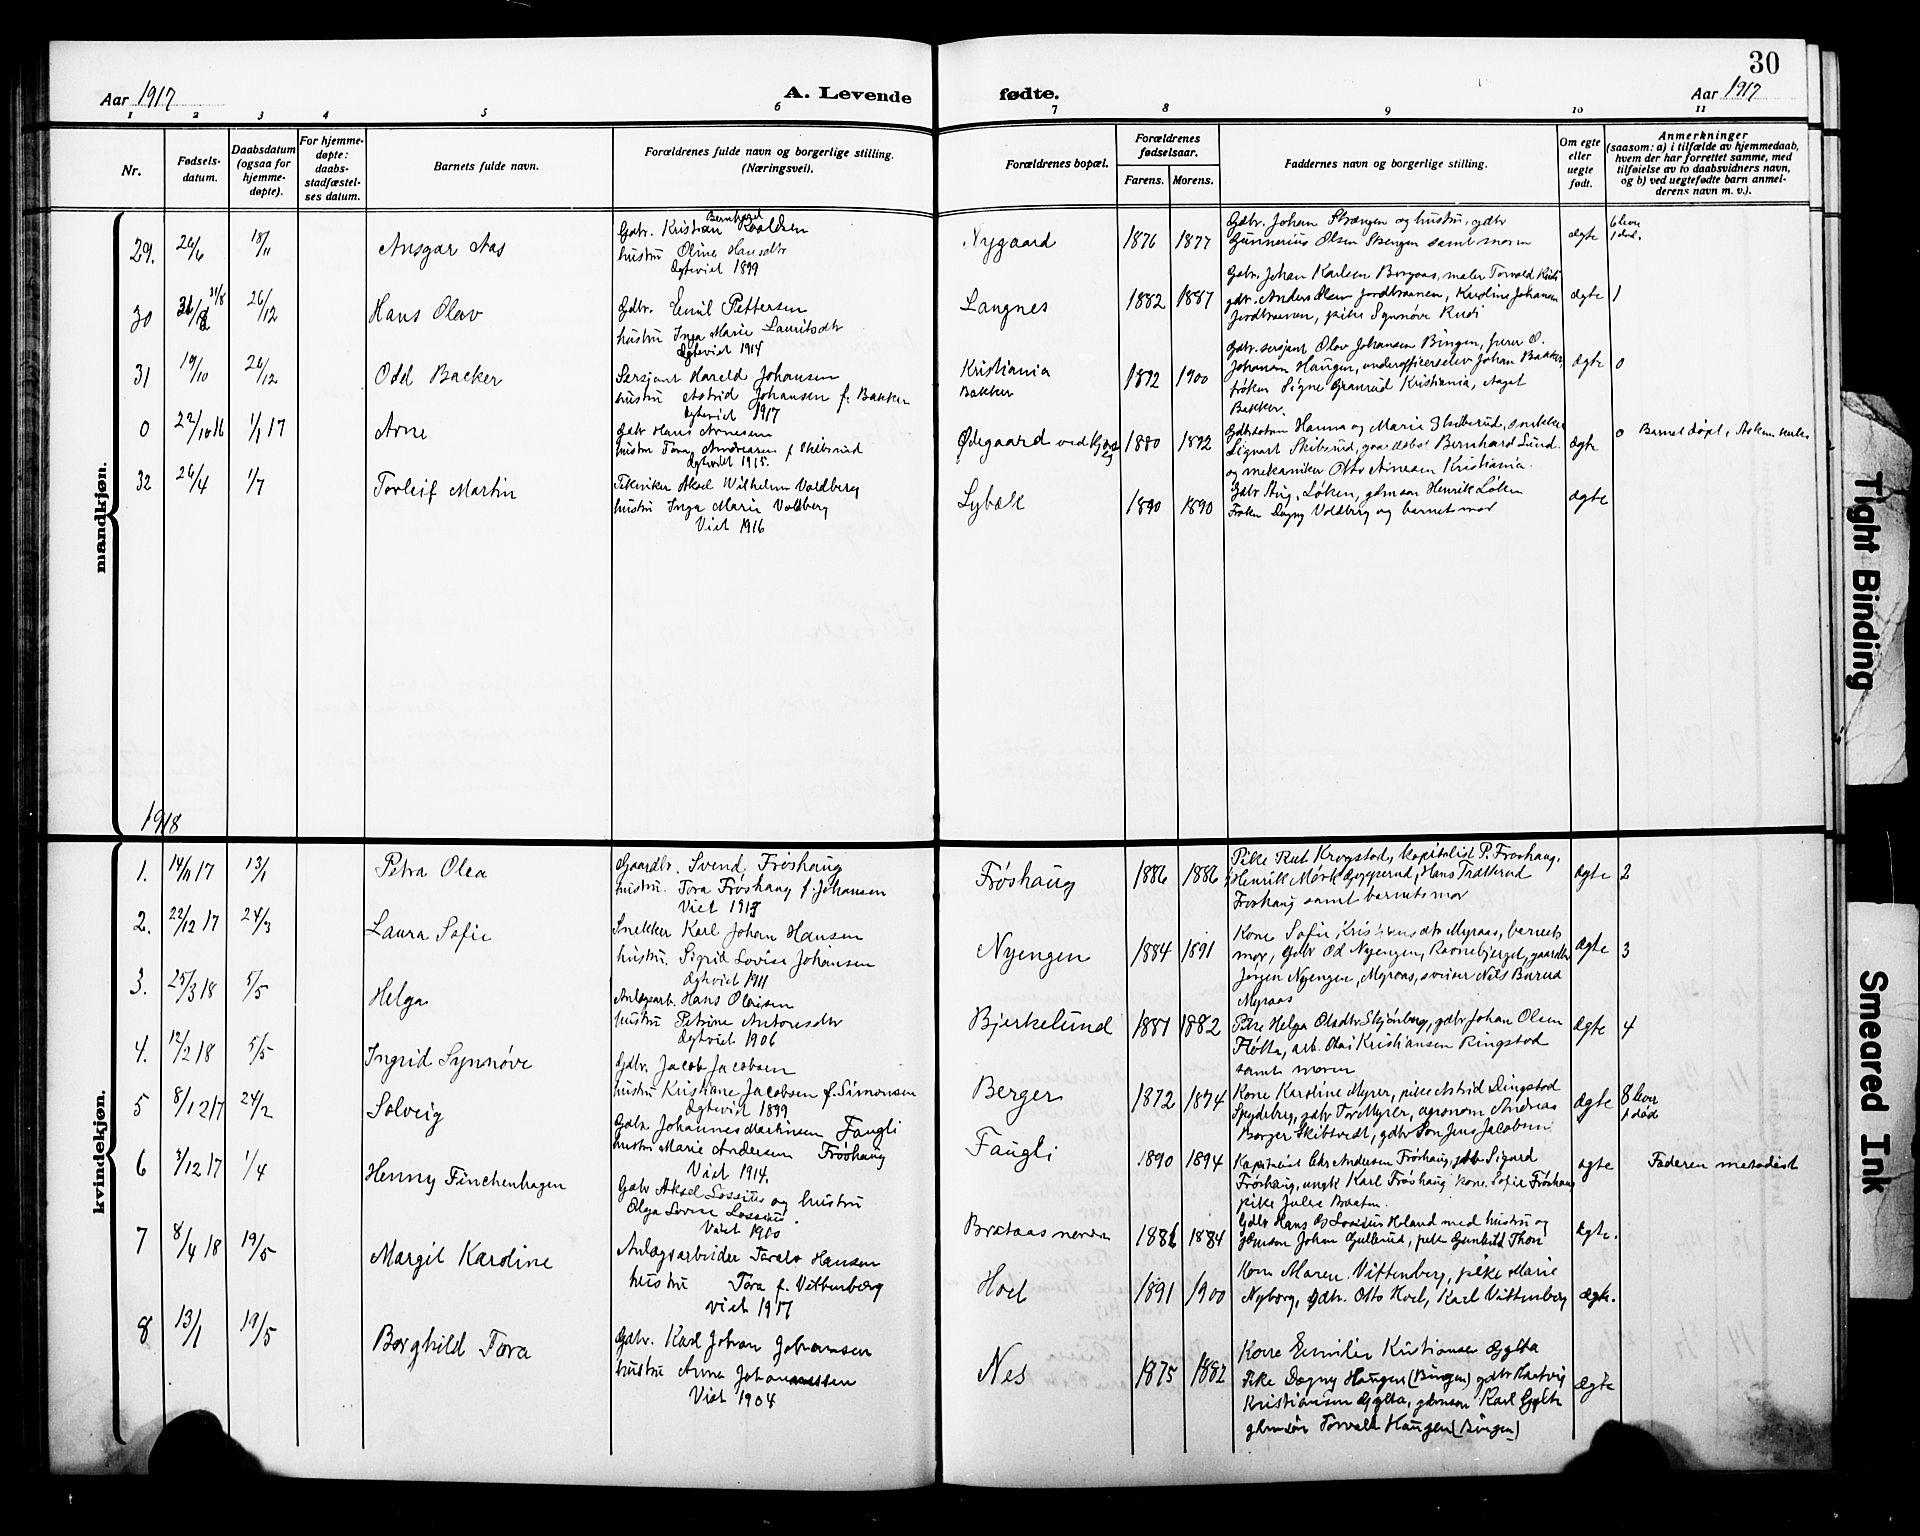 30
Aar 1917
A. Levende fødte.
Aar 1917
1 2 3 4 5 6 7 8 9 10 11
Nr.
Fødsels-
datum.
Daabsdatum
(ogsaa for
hjemme-
døpte).
For hjemme-
døpte:
daabs-
stadfæstel-
ses datum.
Barnets fulde navn.
Forældrenes fulde navn og borgerlige stilling.
(Næringsvei).
Forældrenes bopæl.
Forældrenes
fødselsaar.
Farens. Morens.
Faddernes navn og borgerlige stilling.
Om egte
eller
uegte
født.
Anmerkninger
(saasom: a) i tilfælde av hjemmedaab,
hvem der har forrettet samme, med
tilføielse av to daabsvidners navn,
og b) ved uegtefødte barn anmel-
derens navn m. v.).
mandkjøn.
29. 26/6 18/11 Ansgar Aas
Gdbr. Kristian Bernhard
hustru Oline Hansdtr
Egteviet 1899
Nygaard 1876 1877
Gdbr. Johan Strængen og hustru, gdbr
Gunnerius Olsen Strengen samt moren
ægte 6 leve
1 død.
30 31/8 26/12 Hans Olav
Gdbr. Emil Pettersen
hustru Inga Marie Lauritsdtr
Egteviet 1914
Langnes 1882 1887
Gdbr. Johan Karlsen Borgaas, maler Torvald Rudi
gdbr. Anders Olsen Jordbraaten, Karoline Johansen
Jordbraaten, pike Synnøve Rudi
ægte 1
31 19/10 26/12 Odd Backer
Sersjant Harald Johansen
hustru Astrid Johansen f. Bakker
Egteviet 1917
Kristiania
Bakker
1892 1900
Gdbr. sersjant Olav Johansen Bingen, furer O.
Johansen Haugen, underofficerselev Johan Bakker,
frøken Signe Granrud Kristiania, Aaget
Bakker.
ægte 0
0 22/10 16 1/1 17 Arne
Gdbr Hans Arnesen
hustru Tora Andrearen f. Skibsrud
Egteviet 1915.
Ødegaard ved 1880 1892
Gdbrdatter Hanna og Marie Skibsrud, snekker
Sigvart Skibsrud, Bernhard Lund
og mekaniker Otto Arnesen Kristiania.
ægte 0 Barnet døpt i Askim kirke
32 26/4 1/7 Torleif Martin
Tekniker Aksel Wilhelm Voldberg
hustru Inga Marie Voldberg
Viet 1916
Lybæk 1890 1890
Gdbr Aug. Løken, gdmsøn Henrik Løken
Frøken Dagny Voldberg og barnets mor
ægte
1918
kvindekjøn.
1. 14/11 17 13/1 Petra Olea
Gaardbr. Svend Frøshaug
hustru. Tora Frøshaug f. Johansen
Viet 1913
Frøshaug 1886 1886
Pike Rut Krogstad, kapitalist P. Frøshaug,
Henrik Mørk Eppperud, Hans Trætterud
Frøshaug samt barnets mor
ægte 2
2. 22/12 17 24/3 Laura Sofie
Snekker Karl Johan Hansen
hustru. Sigrid Lovise Johansen
Egteviet 1911
Nyengen 1884 1891
Kone Sofie Kristiansdtr Myraas, barnets
mor, gdbr Od Nyengen, Ravnebjerget, gaardbr
Jørgen Nyengen, Myraas, sviner Nils Barud
Myraas
ægte 3
3. 25/3 18 5/5 Helga
Anlægsarb. Hans Olaisen
hustru Petrine Antonsdtr
Egteviet 1906
Bjerkelund 1881 1882
Pike Helga Olsdtr Skjønberg, gdbr Johan Olsen
Fløtta, arb. Olai Kristiansen Ringstad
samt moren
ægte 4
4. 12/2 18 5/5 Ingrid Synnøve
Gdbr. Jacob Jacobsen
hustru Kristiane Jacobsen f. Simonsen
Egteviet 1899
Berger 1872 1874
Kone Karoline Myrer, pike Astrid Dingstad
Spydeberg, gdbr Tor Myrer, agronom Andreas
Borger Skibtvedt, gdbr søn Jens Jacobsen
ægte 8 leve
1 død
5 8/12 17 24/2 Solveig
Gdbr. Johannes Martinsen Faugli
hustru Marie Andersen Frøshaug
Viet 1914.
Faugli 1890 1894
Kapitalist Chr Andersen Frøshaug, gdbr Sigurd
Frøshaug, ungk Karl Frøshaug kone. Sofie Frøshaug
pike Julie Braaten.
ægte Faderen metodist
6 3/12 17 1/4 Henny Finckenhagen
Gdbr Aksel Lossius og hustru
Olga Lovise Lossius.
Viet 1900
Brataas nerdre 1886 1884
Gdbr Hans Lossius Holand med hustru og
gdmson Johan Gullerud, pike Gunhild Thon
ægte.
7 8/4 18 19/5 Margit Karoline
Anlægsarbeider Torals Hansen
hustru Tora f. Vittenberg
viet 1917
Hoel 1891 1900
Kone Maren Vittenberg, pike Marie
Nyborg, gdbr. Otto Hoel, Karl Vittenberg
ægte.
8 13/1 19/5 Borghild Tora
Gdbr. Karl Johan Johansen
hustru Anna Johannessen
Viet 1904
Nes 1875 1882
Kone Emilie Kristiansen Gylta
Pike Dagny Haugen (Bingen) gdbr
Kristiansen Gylta, gdmson Karl Gylte
gdmsøn Torvald Haugen (Bingen)
ægte
Tight Binding
Smeared Ink